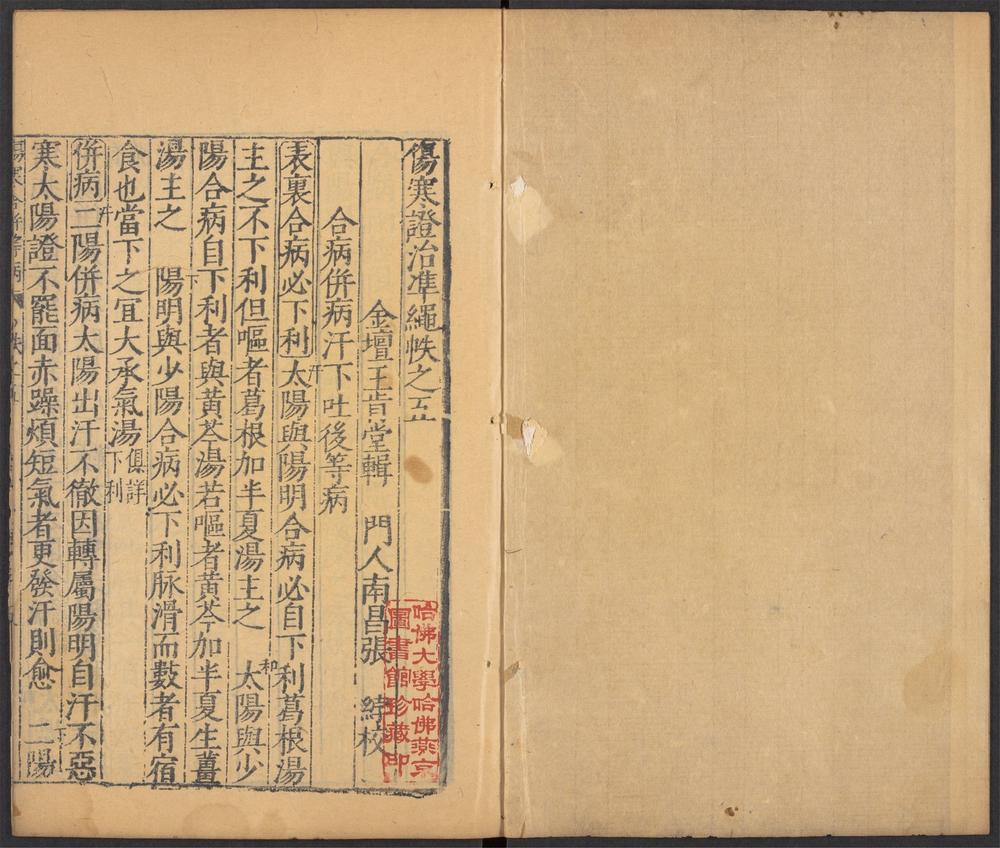 傷寒證治准繩帙之五
金壇王肯堂輯　門人南昌張　綍校
合病併病汗下吐後等病
表裏合病必下利汗太陽與陽明合病必自下利葛根湯
主之不下利但嘔者葛根加半夏湯主之　和太陽與少
陽合病自下利者與黃芩湯若嘔者黃芩加半夏生薑
湯主之　下陽明與少陽合病必下利脉滑而數者有宿
食也當下之宜大承氣湯俱詳下利
併病汗二陽併病太陽出汗不徹因轉屬陽明自汗不惡
寒太陽證不罷面赤躁煩短氣者更發汗則愈　下二陽
哈佛大學哈佛燕京
圖書館珍藏印